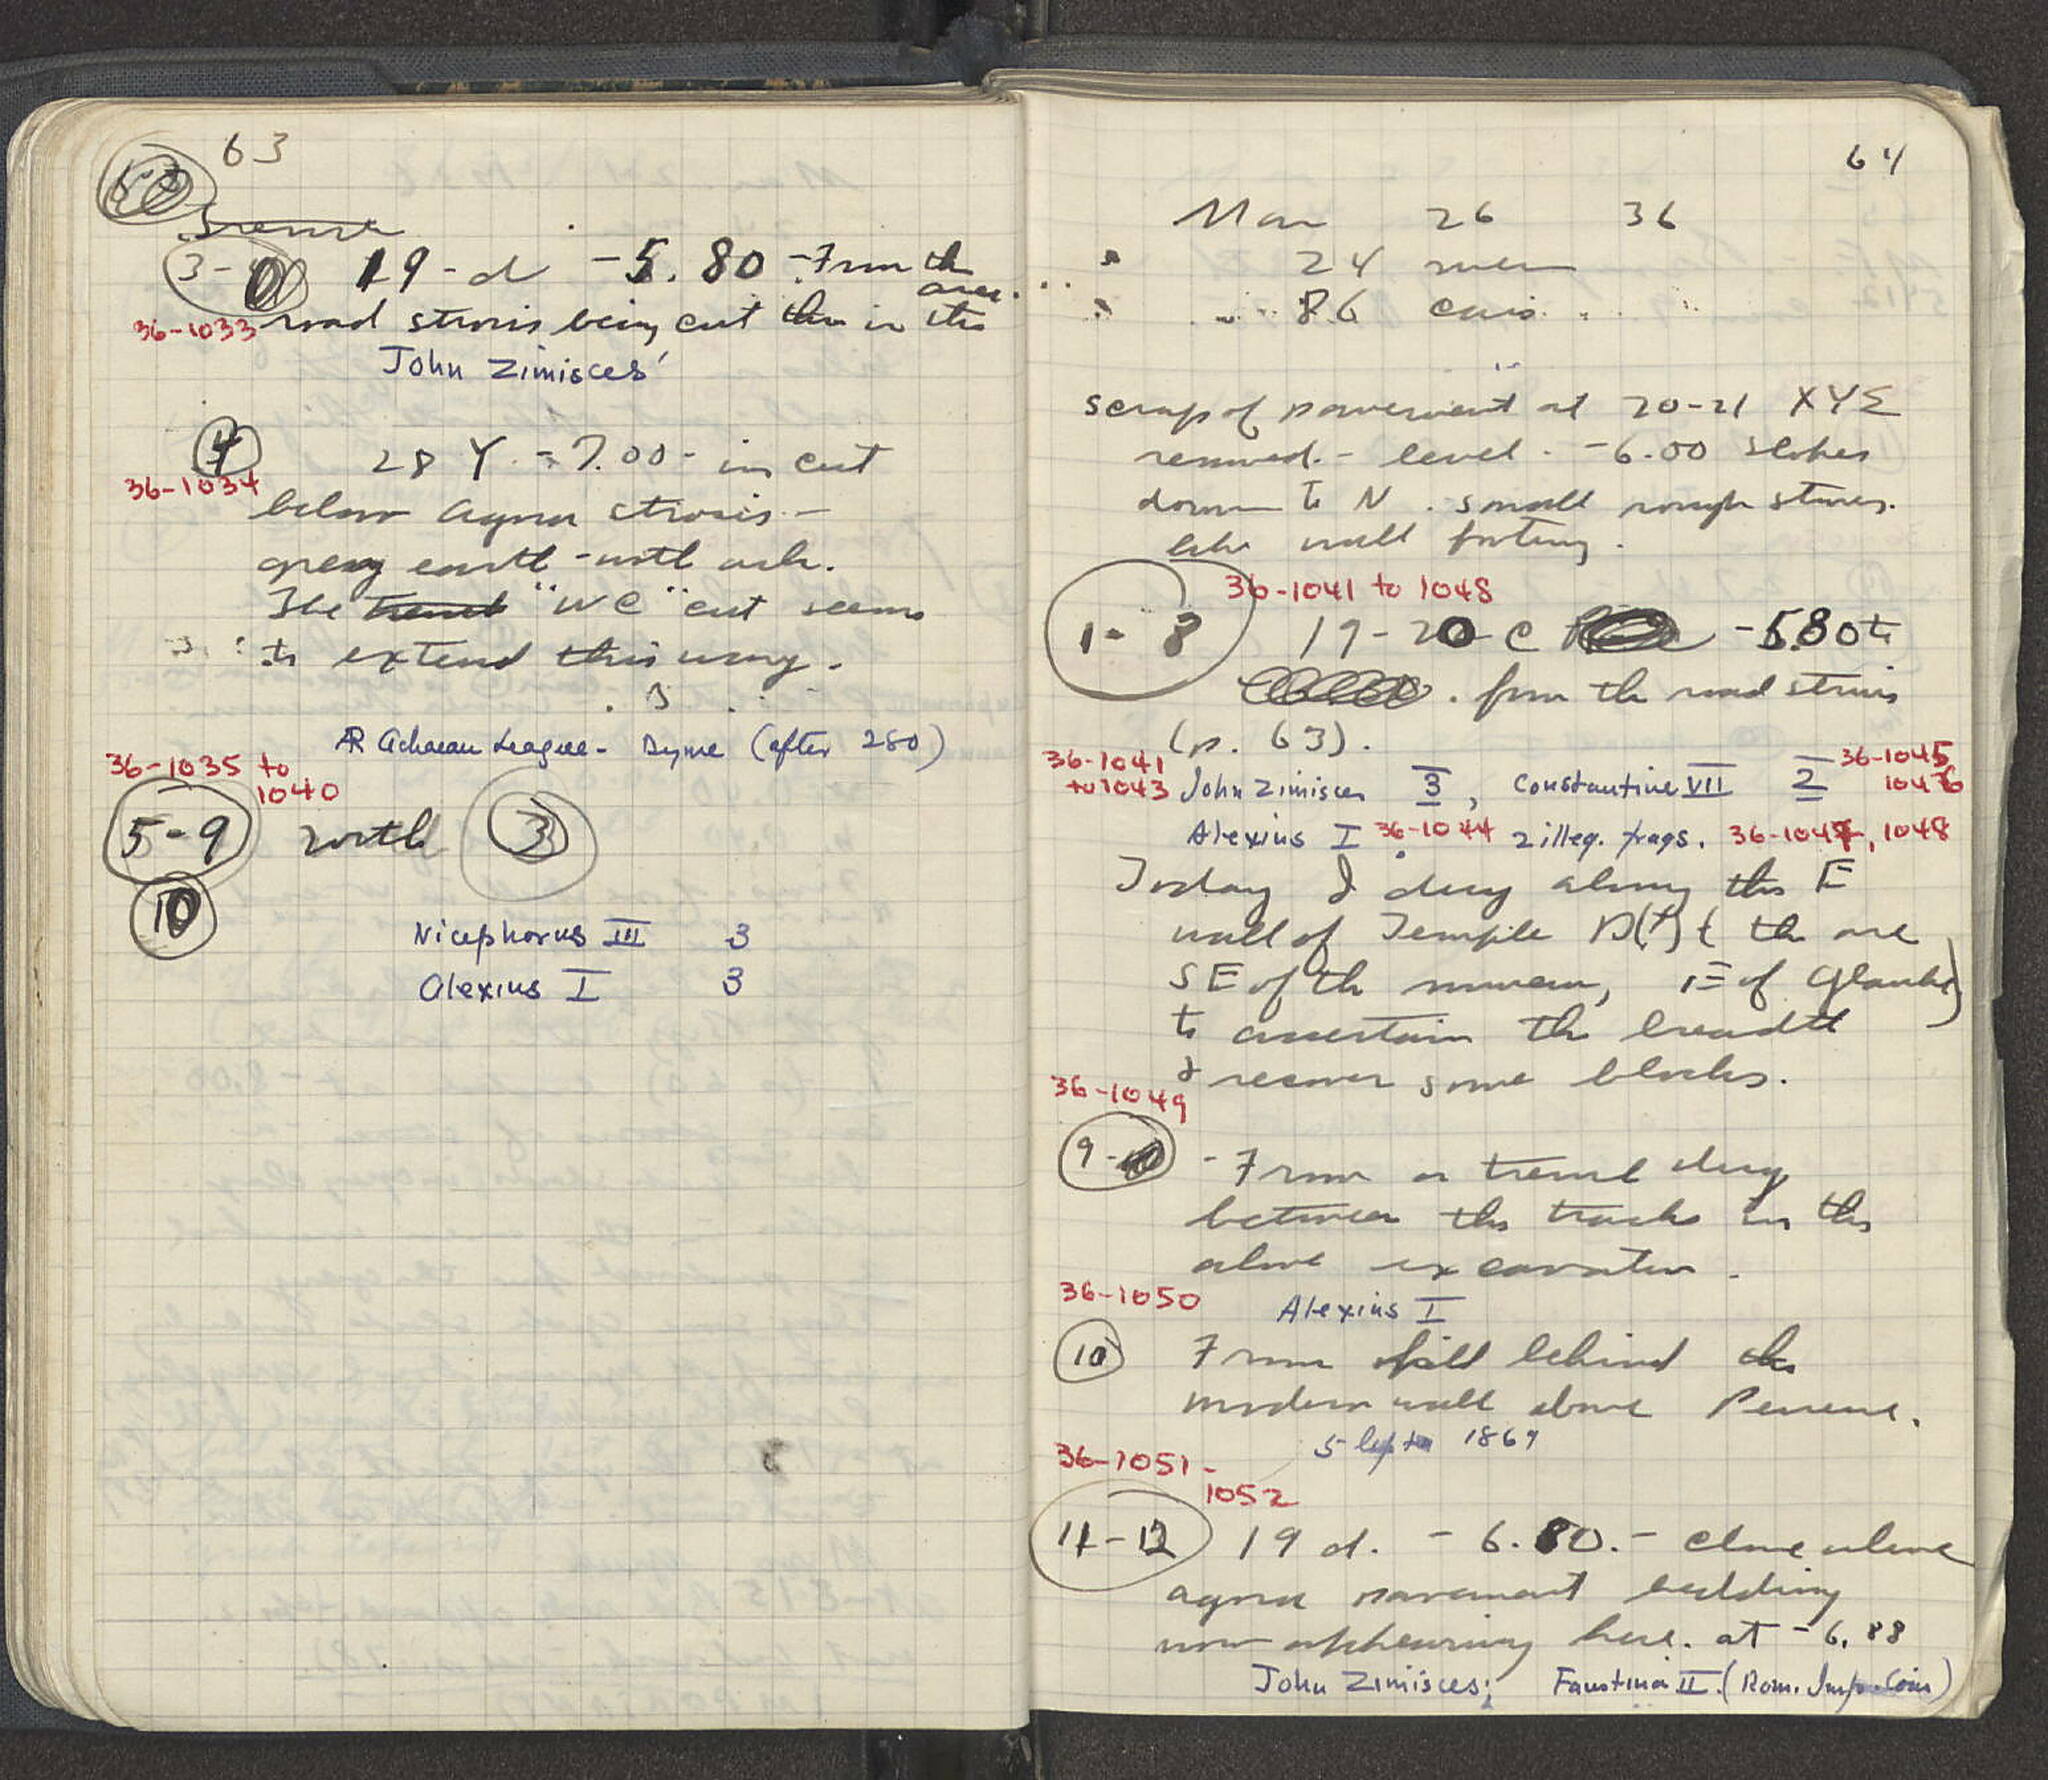 63
3-
19-d -5.80 - From the
area.
36-1033 road strosis being cut thru in the
John Zimisces
4
28 Y -7.00 - in cut
36-1034
below agora strosis -
grey earth - with ash.
The trench "WC" cut seems
to extend this way.
AR Achaean League - Dyme (after 280)
36-1035 to
1040
5-9 with 3
10
Nicephorus III 3
Alexius I 3
64
Mar 26 36
24 men
86 cars
scrap of pavement at 20-21 XYZ
removed. - level - -6.00 slopes
down to N. small rough stones.
like wall footing.
36-1041 to 1048
1-8 19-20 C -5.80 to
. from the road strosis
(p. 63).
36-1041 to 1043 John Zimisces 3, Constantine VII 2 36-1045, 1046
Alexius I 36-1044 2 illeg. frags. 36-1047, 1048
Today I dug along the E
wall of Temple D(?) & the one
SE of the museum, (E of Glauke)
to ascertain the breadth
& recover some blocks.
36-1049
9- - From a trench dug
between the tracks in the
above excavation.
36-1050
Alexius I
10 From fill behind the
modern wall above Peirene.
5 lepta 1869
36-1051-
1052
11-12 19 d. - 6.80. - close above
agora pavement bedding
now appearing here. at -6.88
John Zimisces; Faustina II. (Rom. Imp. Coin)